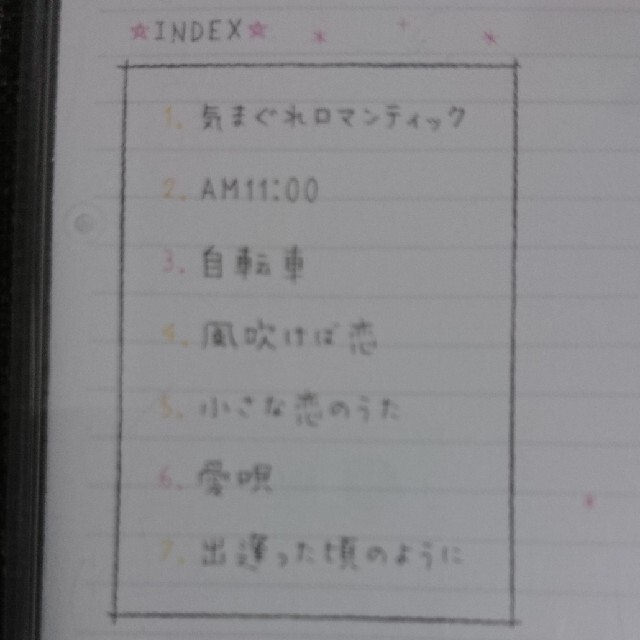 ☆INDEX☆
1. 気まぐれロマンティック
2. AM11:00
3. 自転車
4. 風吹けば恋
5. 小さな恋のうた
6. 愛唄
7. 出逢った頃のように